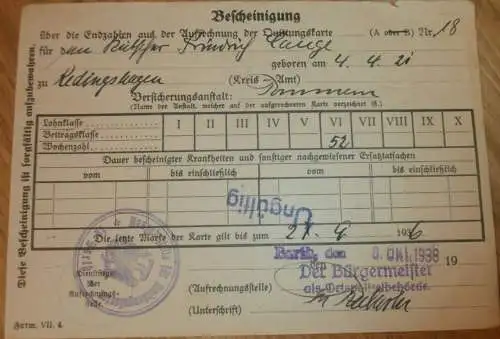 Bescheinigung
über die Endzahlen aus der Aufrechnung der Quittungskarte (A oder B) Nr. 18
für den Kutscher Friedrich Lange
geboren am 4. 4. 21
zu Redingshagen (Kreis - Amt)
Versicherungsanstalt: Pommern
(Name der Anstalt, welcher auf der aufgerechneten Karte verzeichnet ist.)
Lohnklasse
Beitragsklasse I II III IV V VI VII VIII IX X
Wochenzahl 52
Dauer bescheinigter Krankheiten und sonstiger nachgewiesener Ersatztatsachen
vom bis einschließlich vom bis einschließlich
Ungültig
Die letzte Marke der Karte gilt bis zum 27. 9 1936
Barth, den Okt. 1938 19
Dienstsiegel
der
Aufrechnungs-
stelle.
Der Bürgermeister
(Aufrechnungsstelle) als Ortspolizeibehörde.
(Unterschrift)
Form. VII. 4.
Diese Bescheinigung ist sorgfältig aufzubewahren.